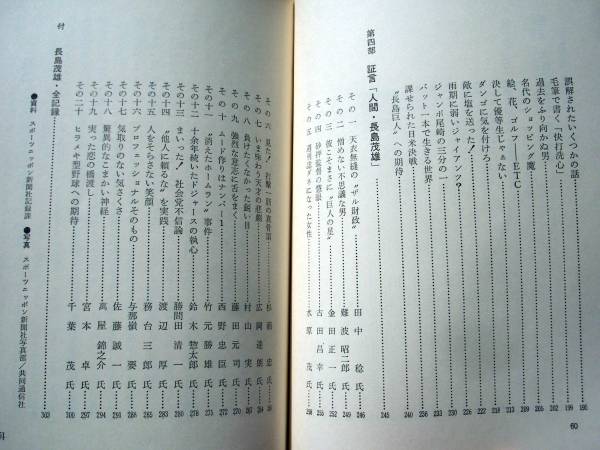 誤解されたいくつかの話 190
毛筆で書く「快打洗心」 199
過去をふり向かぬ男 202
名代のショッピング魔 206
絵、花、ゴルフ――ETC 209
決して優等生じゃない
ダンゴに気を付けろ!
敵に塩を送った!
雨期に弱いジャイアンツ?
ジャンボ尾崎の三分の一
バット一本で生きる世界
課せられた日米決戦
〝長島巨人〟への期待
第四部 証言「人間・長島茂雄」 245
その一 天衣無縫の〝ザル財政〟 田中 稔氏 246
その二 憎めない不思議な男 難波昭二郎氏
その三 彼こそまさに〝巨人の星〟 金田正一氏 252
その四 砂押監督の慧眼 古田昌幸氏 256
その五 になった女性 水原 茂氏 258
60
その六 見た! 打撃一筋の真骨頂 杉浦 忠氏
その七 いま味わう天才の悲劇 広岡達朗氏
その八 負けたくなかった鋭い目 村山 実氏
その九 強烈な意志に舌をまく 藤田元司氏 270
その十 ムード作りはナンバー1 西野忠臣氏
その十一 〝消えたホームラン〟事件 竹元勝雄氏 276
その十二 十余年続いたドジャースの執心 鈴木惣太郎氏 278
その十三 まいった! 社会党不信論 勝間田清一氏 280
その十四 「他人に頼るな」を実践 渡辺 厚氏 283
その十五 人をそらさない笑顔 務台三郎氏 285
その十六 プロフェッショナルそのもの 与那嶺 要氏 288
その十七 気取りのない気さくさ 佐藤誠一氏 291
その十八 驚異的なこまかい神経 高屋錦之介氏 294
その十九 実った恋の橋渡し 宮本卓氏 297
その二十 ヒラメキ型野球への期待 千葉 茂氏 300
付 長島茂雄・全記録 303
●資料 スポーツニッポン新聞社記録課 ●写真 スポーツニッポン新聞社写真部/共同通信社